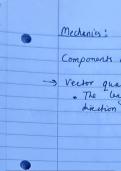 Mechanics:
Components
→ Vector qua
• The
direction